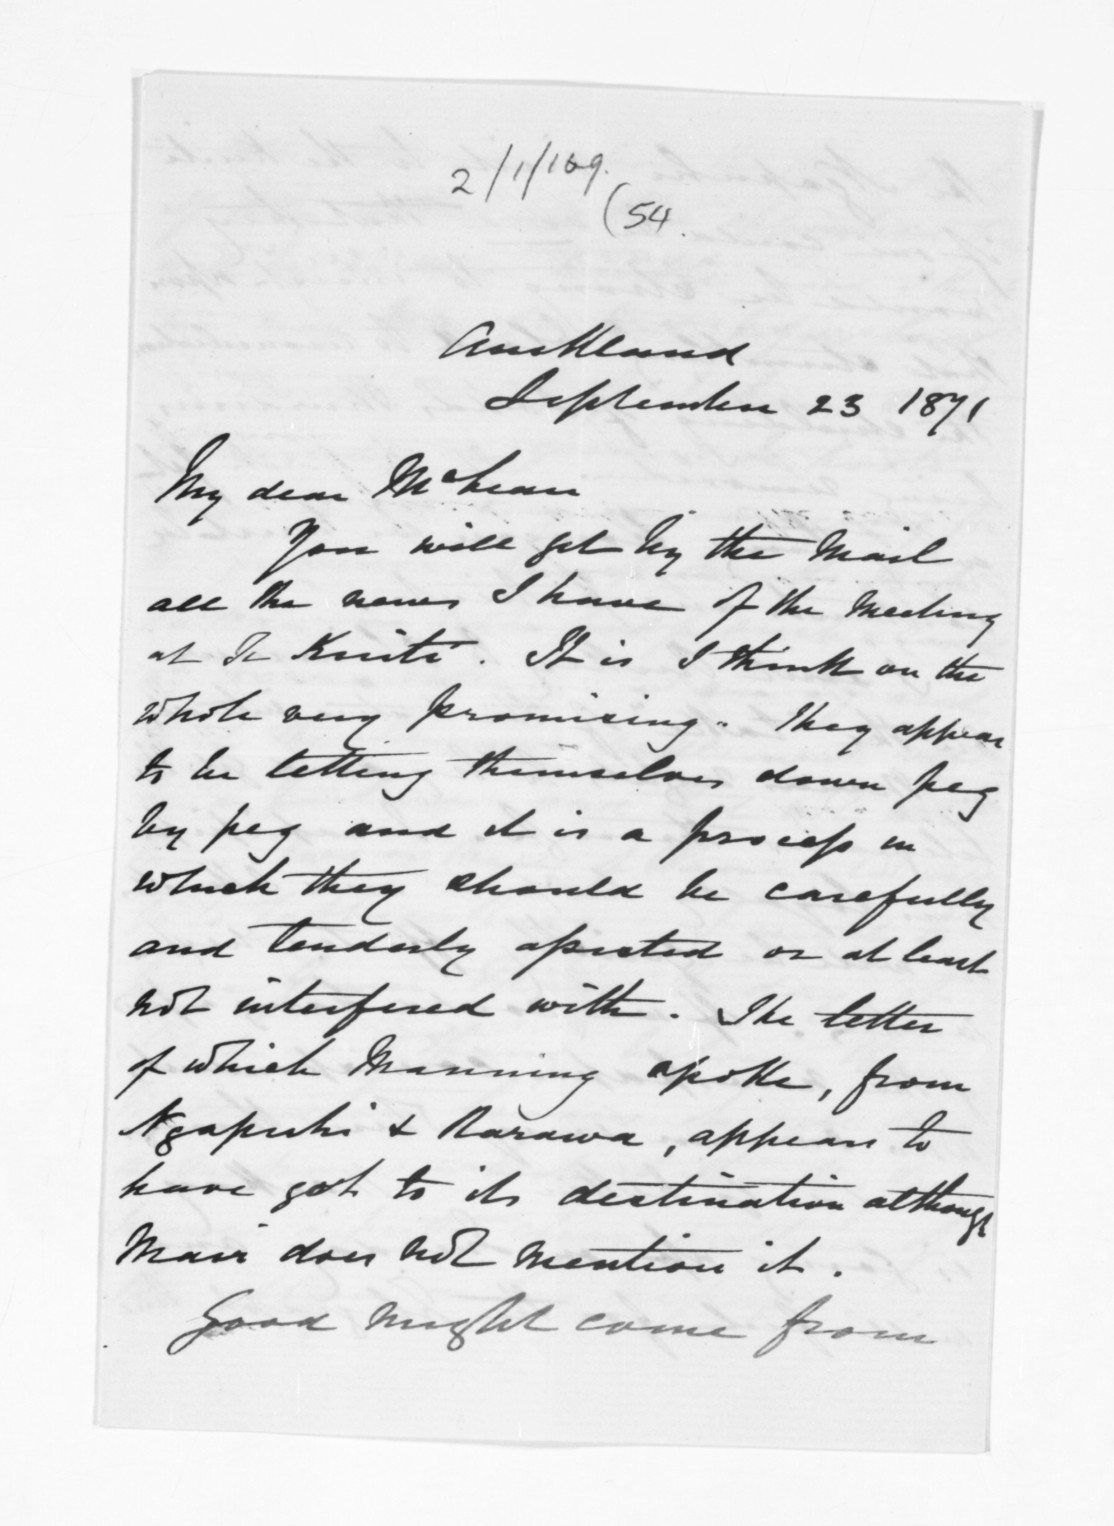 2/1/169.
(54.
Auckland
September 23 1871
My dear McLean
You will get by the Mail
all the news I have of the Meeting
at Te Kuiti. It is I think on the
whole very promising. They appear
to be letting themselves down peg
by peg and it is a process in
which they should be carefully
and tenderly assisted or at least
not interfered with. The letter
of which Manning spoke, from
Ngapuhi & Rarawa, appears to
have got to its destination although
Mair does not mention it.
Good might come from